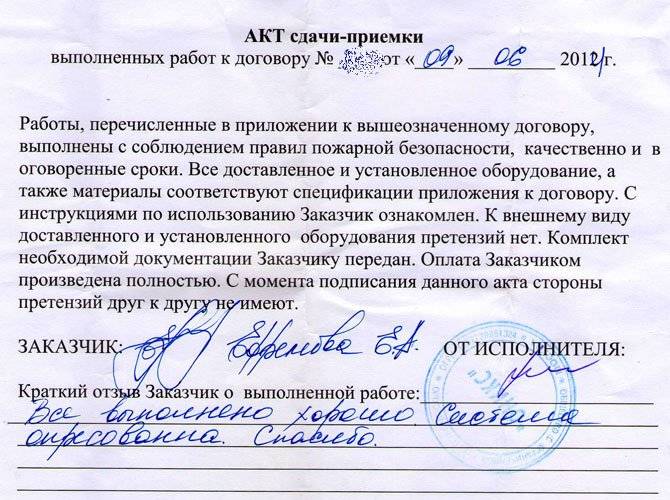 АКТ сдачи-приемки
выполненных работ к договору № от «09» 06 201 г.
Работы, перечисленные в приложении к вышеозначенному договору,
выполнены с соблюдением правил пожарной безопасности, качественно и в
оговоренные сроки. Все доставленное и установленное оборудование, а
также материалы соответствуют спецификации приложения к договору. С
инструкциями по использованию Заказчик ознакомлен. К внешнему виду
доставленного и установленного оборудования претензий нет. Комплект
необходимой документации Заказчику передан. Оплата Заказчиком
произведена полностью. С момента подписания данного акта стороны
претензий друг к другу не имеют.
ЗАКАЗЧИК: Ефремова Е.А. ОТ ИСПОЛНИТЕЛЯ:
Краткий отзыв Заказчик о выполненной работе:
Все выполнено хорошо Система
опресованна. Спасибо.